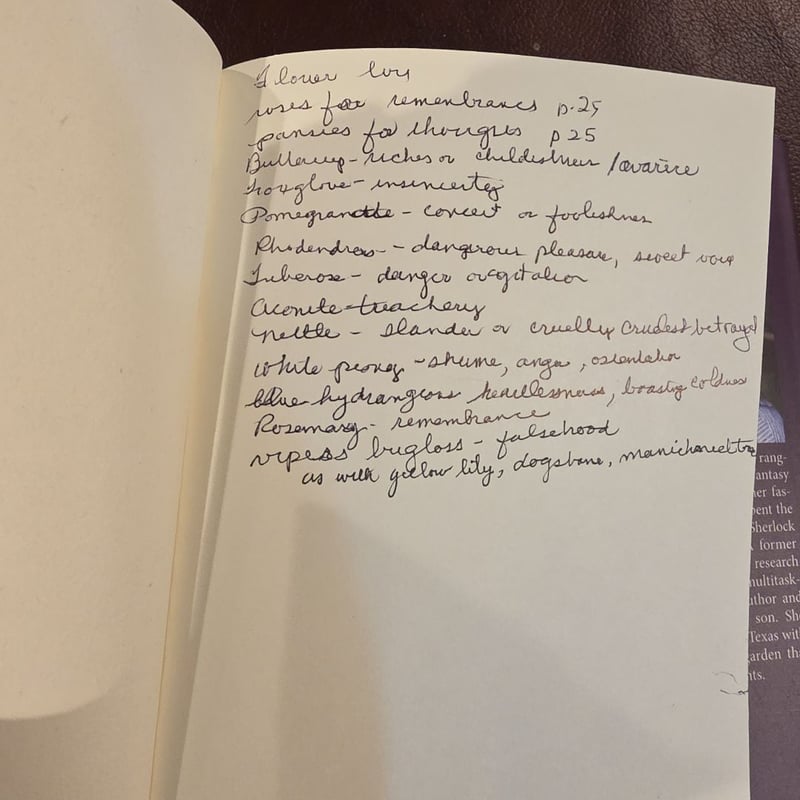 Flower
roses for remembrances p.25
pansies for thoughts p 25
Buttercup - riches or childishness / avarice
Foxglove - insincerity
Pomegranate - conceit or foolishness
Rhodendron - dangerous pleasure, sweet
Tuberose - danger or agitation
Aconite - treachery
nettle - slander or cruelty crudest betrayal
white peony - shame, anger, ostentation
blue hydrangeas heartlessness, boasting coldness
Rosemary - remembrance
vipers bugloss - falsehood
as with yellow lily, dogsbane,
rang-
antasy
er fas-
ent the
Sherlock
former
research
multitask-
uthor and
son. Sh
Texas wit
arden tha
nts.